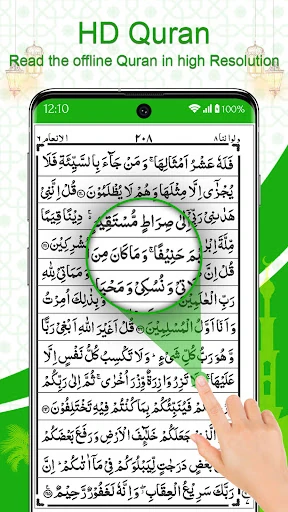 HD Quran
Read the offline Quran in high Resolution
12:10 100%
ولواننا ٨ ٢٠٨ الانعام ٦
فَلَهٗ عَشْرُ اَمْثَالِهَا ۚ وَمَنْ جَآءَ بِالسَّيِّئَةِ فَلَا
يُجْزٰٓى اِلَّا مِثْلَهَا وَهُمْ لَا يُظْلَمُوْنَ ۝ قُلْ اِنَّنِيْ
هَدٰىنِيْ اِلٰى صِرَاطٍ مُّسْتَقِيْمٍ دِيْنًا قِيَمًا
مِّلَّةَ حَنِيْفًا ۚ وَمَا كَانَ مِنَ
قُلْ اِنَّ وَنُسُكِيْ وَمَحْيَا وَمَمَاتِيْ لِلّٰهِ
رَبِّ الْعٰلَمِيْنَ وَبِذٰلِكَ اُمِرْتُ
وَاَنَا اَوَّلُ الْمُسْلِمِيْنَ ۝ قُلْ اَغَيْرَ اللّٰهِ اَبْغِيْ رَبًّا
وَّهُوَ رَبُّ كُلِّ شَيْءٍ ؕ وَلَا تَكْسِبُ كُلُّ نَفْسٍ اِلَّا
عَلَيْهَا ۚ تَزِرُ وَازِرَةٌ وِّزْرَ اُخْرٰى ۚ ثُمَّ اِلٰى رَبِّكُمْ
فَيُنَبِّئُكُمْ بِمَا كُنْتُمْ فِيْهِ تَخْتَلِفُوْنَ ۝
الَّذِيْ جَعَلَكُمْ خَلٰٓئِفَ الْاَرْضِ وَرَفَعَ بَعْضَكُمْ
بَعْضٍ دَرَجٰتٍ لِّيَبْلُوَكُمْ فِيْ مَآ اٰتٰىكُمْ ؕ اِنَّ
رَبَّكَ سَرِيْعُ الْعِقَابِ ۖ وَاِنَّهٗ لَغَفُوْرٌ رَّحِيْمٌ ۝